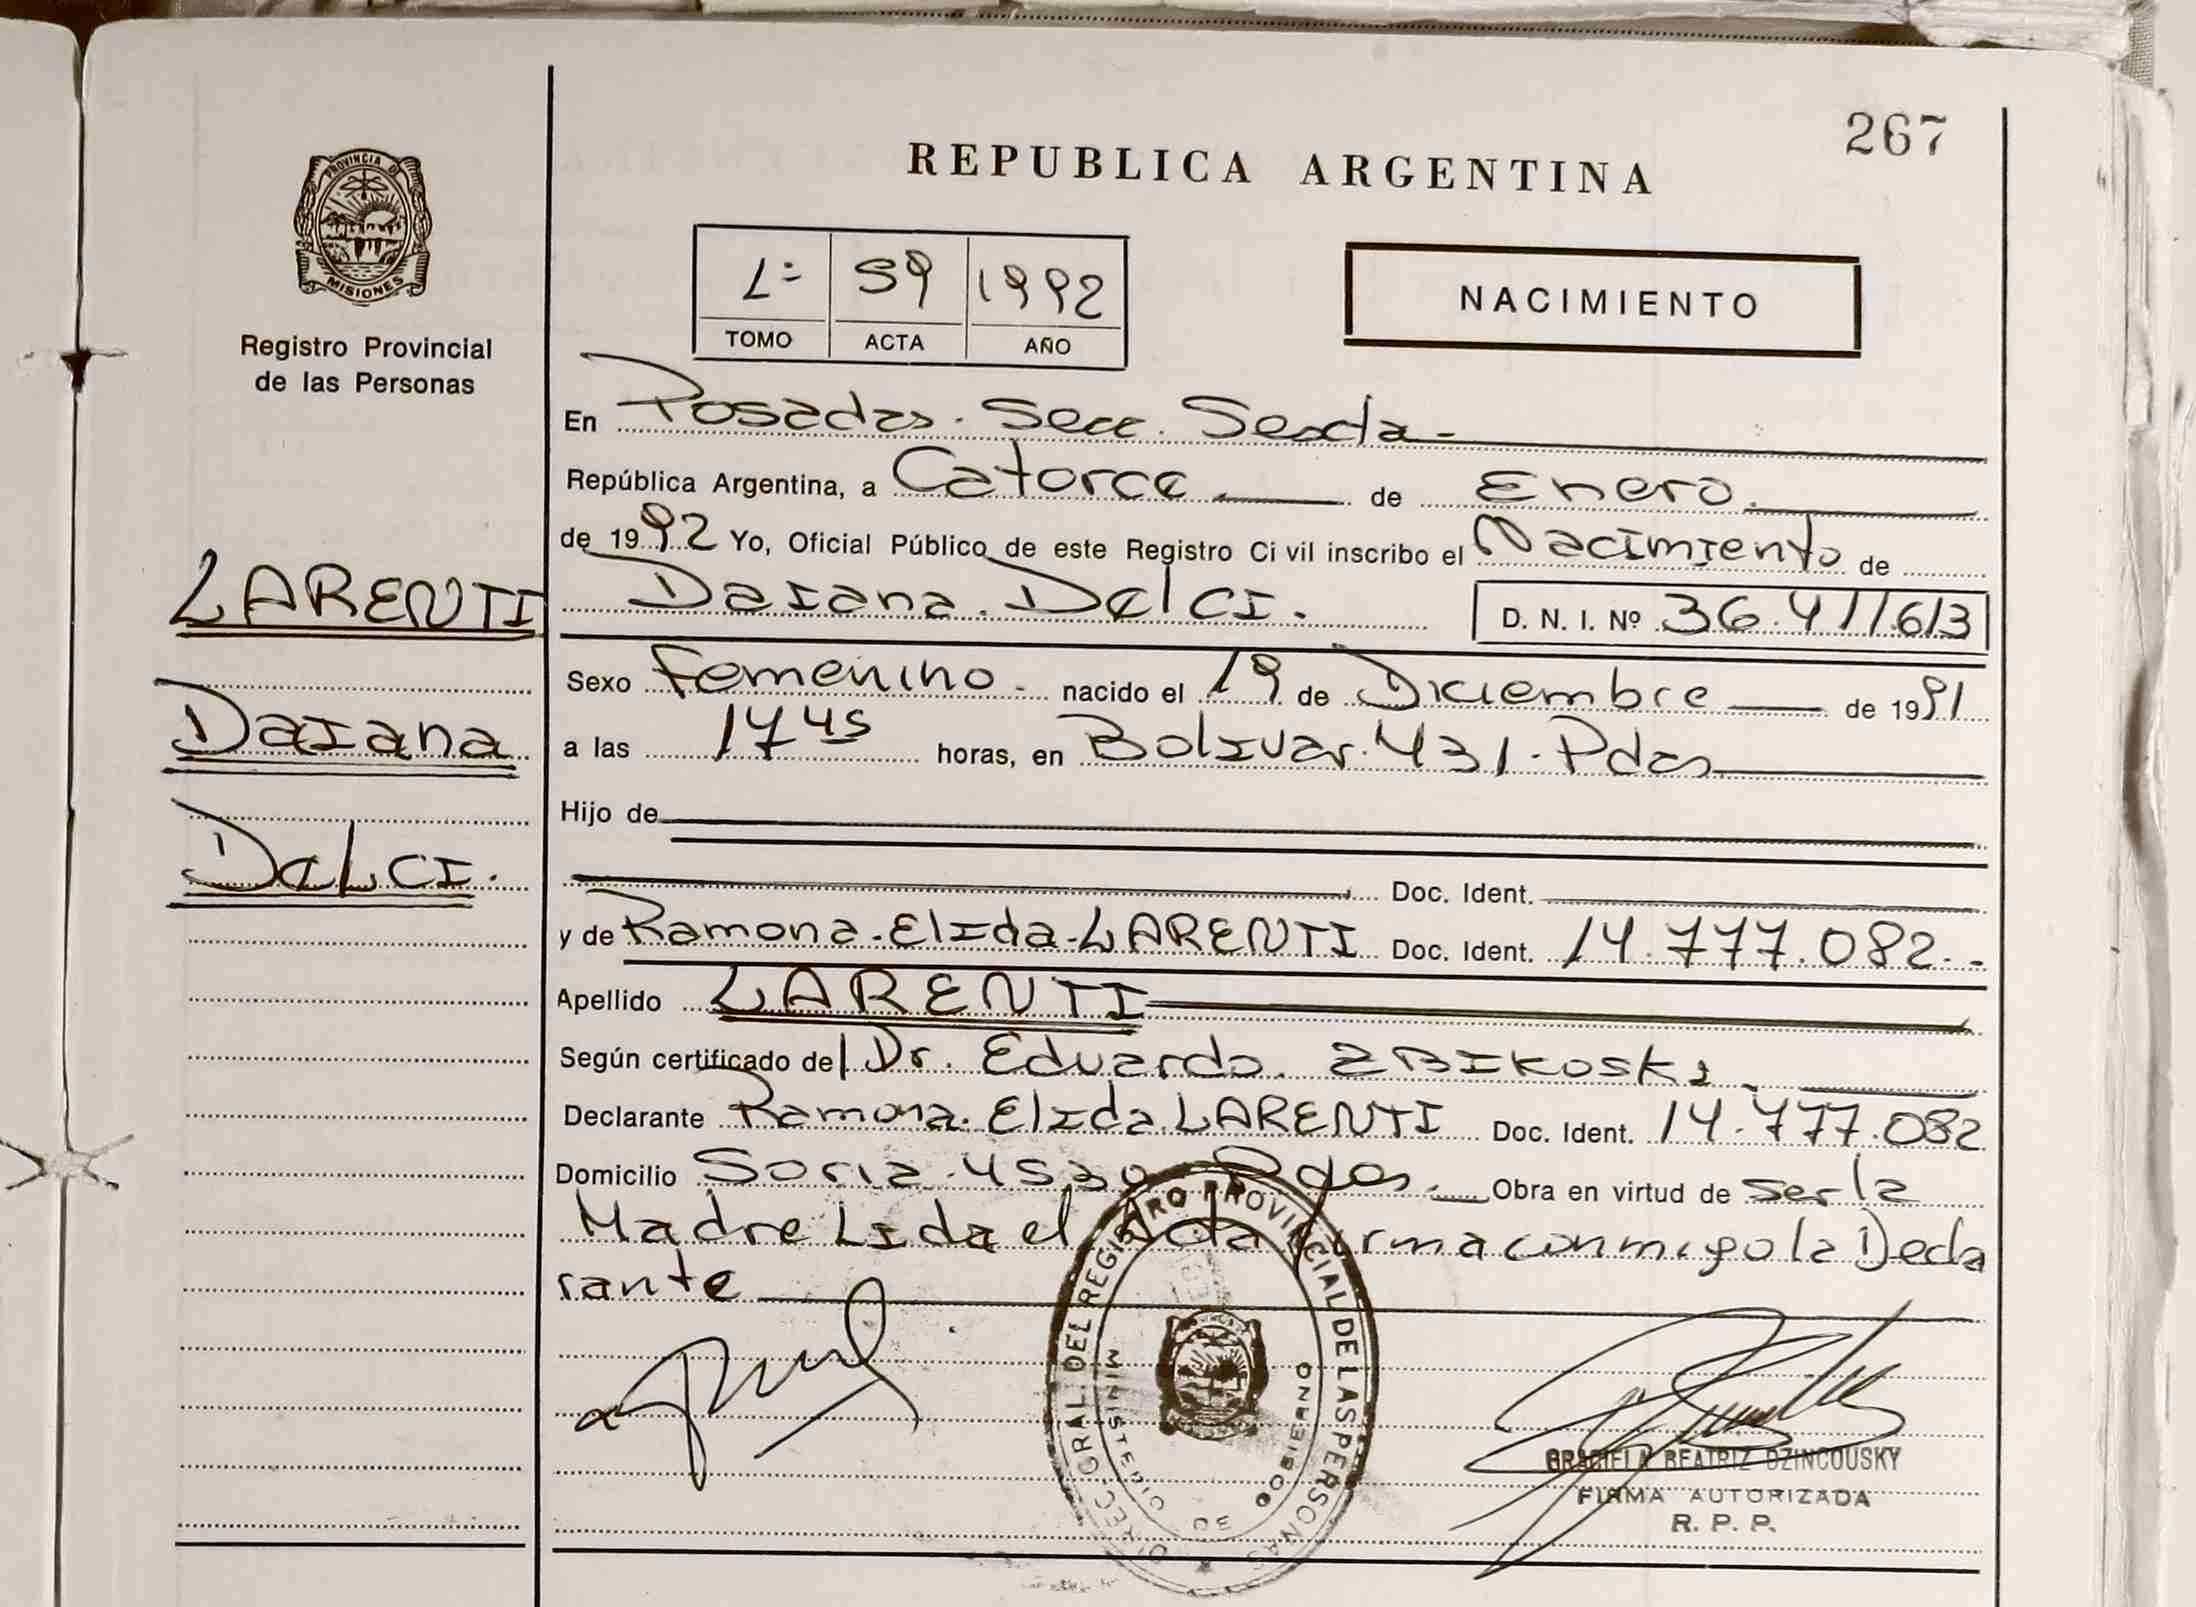 267
REPUBLICA ARGENTINA
PROVINCIA DE
MISIONES
Registro Provincial
de las Personas
L= 59 1992
TOMO ACTA AÑO
NACIMIENTO
En Posadas. Secc. Sexta-
República Argentina, a Catorce de Enero.
de 1992 Yo, Oficial Público de este Registro Civil inscribo el Nacimiento de
Daiana. Delci. D. N. I. Nº 36.411613
LARENTI
Daiana
Delci.
Sexo Femenino. nacido el 19 de Diciembre de 1991
a las 17 45 horas, en Bolivar. 431. Pdas
Hijo de
Doc. Ident.
y de Ramona. Elida. LARENTI Doc. Ident. 14.777.082.-
Apellido LARENTI
Según certificado del Dr. Eduardo. ZBIKOSKI.
Declarante Ramona. Elida. LARENTI Doc. Ident. 14.777.082
Domicilio Soria. 4530 Pdas. Obra en virtud de ser la
Madre Lida el Acta firma conmigo la Decla
rante
DIREC. GRAL. DEL REGISTRO PROVINCIAL DE LAS PERSONAS
MINISTERIO DE GOBIERNO
GRACIELA BEATRIZ DZINCOUSKY
FIRMA AUTORIZADA
R. P. P.